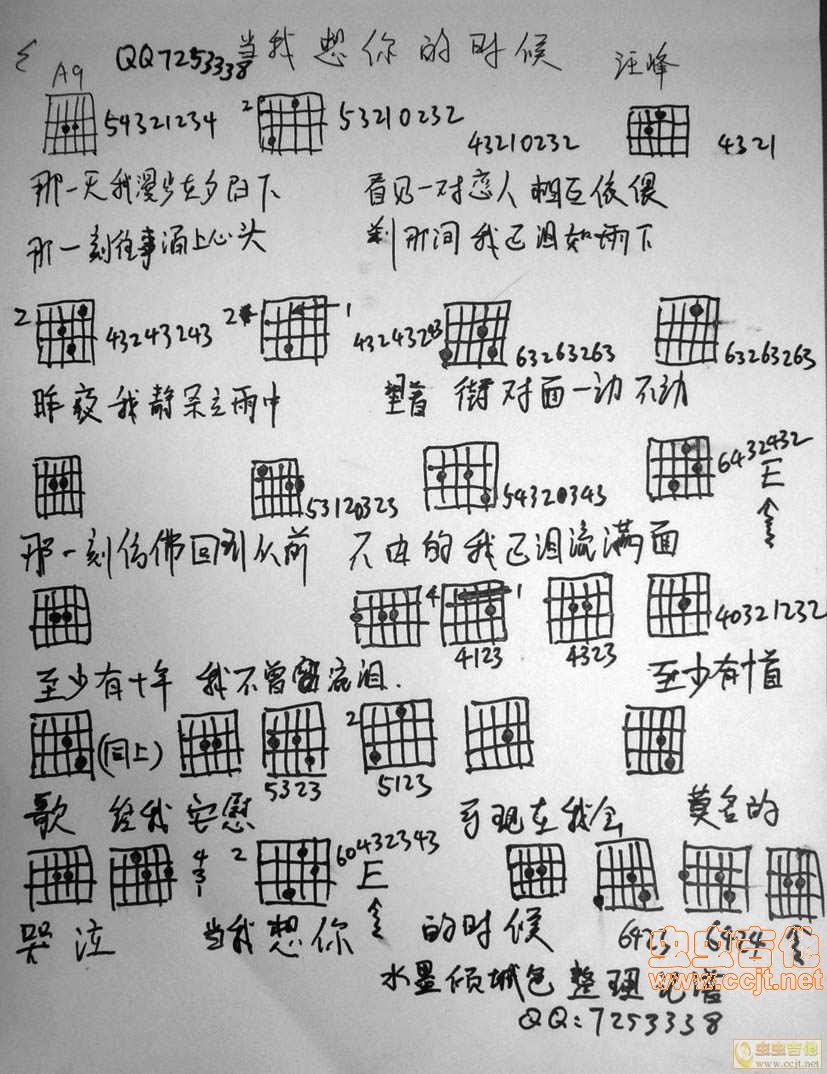 QQ7253338当我想你的时候 汪峰
A9
54321234 2 53210232 43210232 4321
那一天我漫步在夕阳下 看见一对恋人相互依偎
那一刻往事涌上心头 刹那间我已泪如雨下
2 43243243 2 1 43243243 63263263 63263263
昨夜我静呆立雨中 望着街对面一动不动
53120323 54320343 6432432
E
那一刻仿佛回到从前 不由的我已泪流满面
4 1 4123 4323 40321232
至少有十年 我不曾流泪. 至少有十首
(同上) 5323 2 5123
歌 给我安慰 可现在我会 莫名的
4 3 1 2 60432343
E
哭泣 当我想你 的时候 6423 6424
虫虫吉他
www.ccjt.net
水墨倾城色 整理
QQ:7253338
虫虫吉他
www.ccjt.net